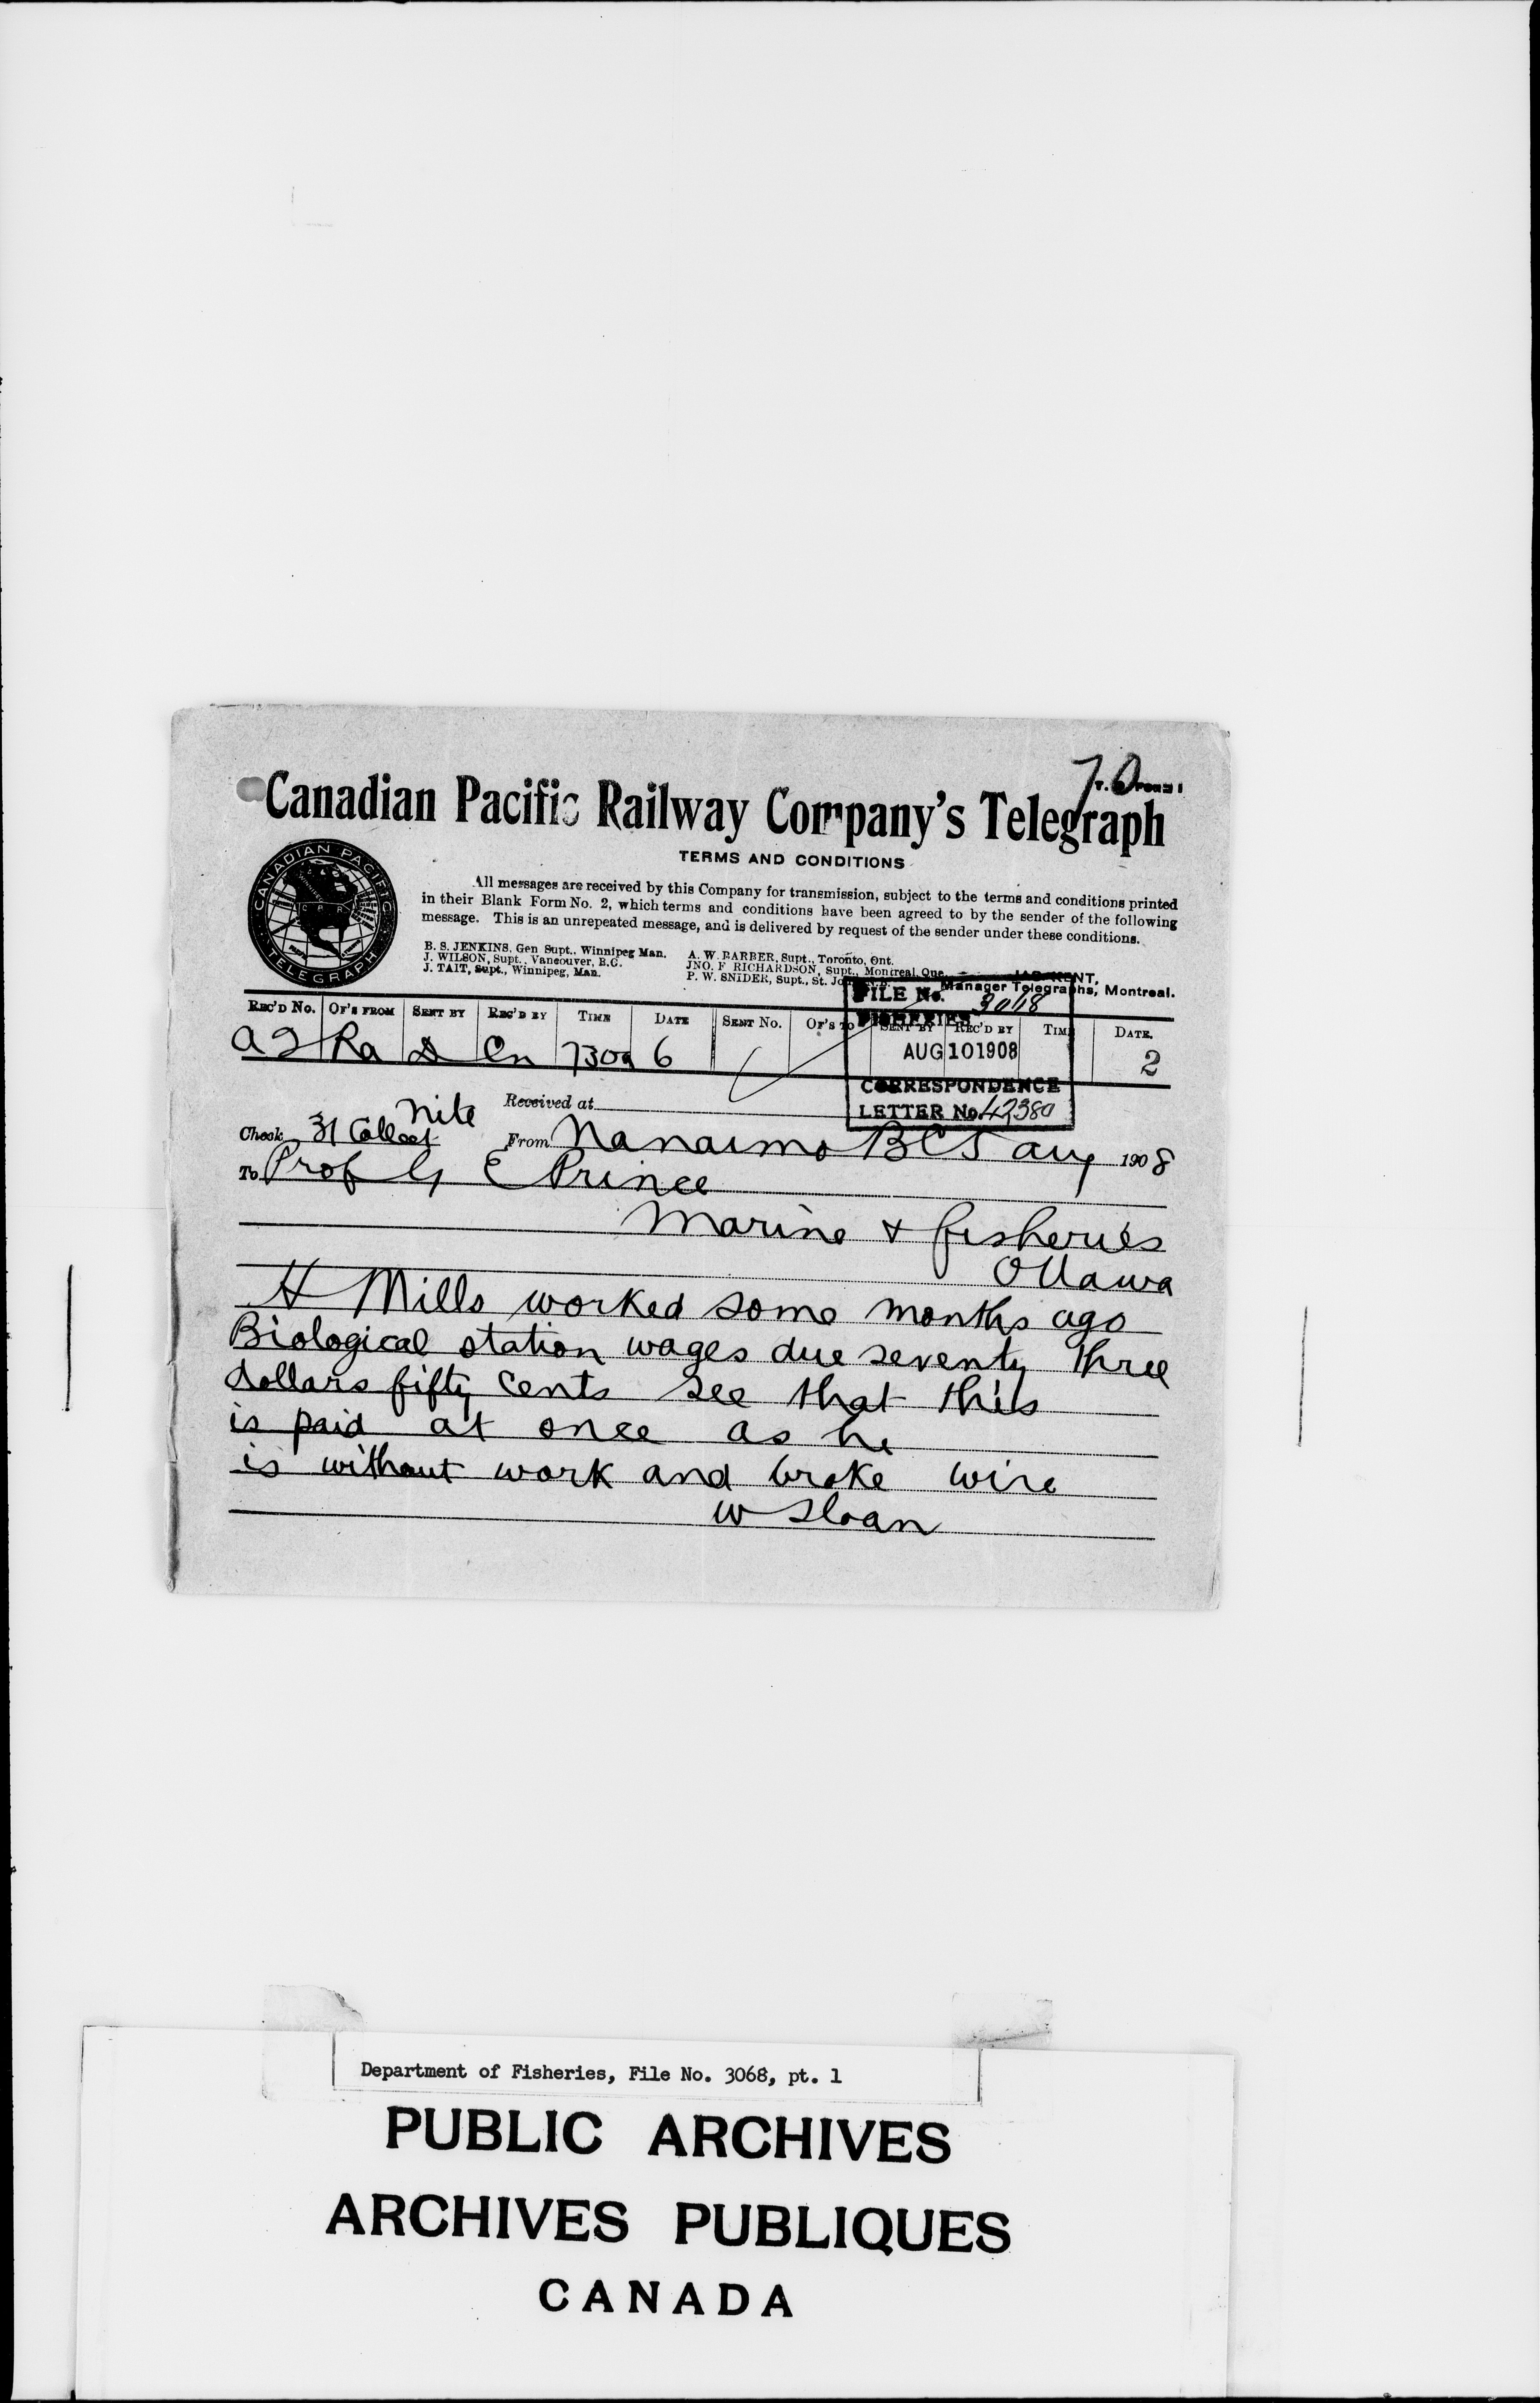 T. O.
Canadian Pacific Railway Company's Telegraph
TERMS AND CONDITIONS
All messages are received by this Company for transmission, subject to the terms and conditions printed
in their Blank Form No. 2, which terms and conditions have been agreed to by the sender of the following
message. This is an unrepeated message, and is delivered by request of the sender under these conditions.
CANADIAN PACIFIC
TELEGRAPH
B. S. JENKINS, Gen Supt., Winnipeg Man.
J. WILSON, Supt., Vancouver, B.C.
J. TAIT, Supt., Winnipeg, Man.
A. W. BARBER, Supt., Toronto, Ont.
JNO. F RICHARDSON, Supt., Montreal, Que.
P. W. SNIDER, Supt., St. John
KENT,
Manager Telegraphs, Montreal.
FILE No.
FISHERIES
AUG 10 1908
CORRESPONDENCE
LETTER No. 42380
REC'D No. OF'S FROM SENT BY REC'D BY TIME DATE SENT No. OF'S TO SENT BY REC'D BY TIME DATE.
Ra D Cn 730a 6 2
Received at
Check 31 Collect Nite From Nanaimo BC 5 Aug 1908
To Prof G E Prince
Marine & fisheries
Ottawa
H Mills worked some months ago
Biological station wages due seventy three
dollars fifty cents see that this
is paid at once as he
is without work and broke wire
W Sloan
Department of Fisheries, File No. 3068, pt. 1
PUBLIC ARCHIVES
ARCHIVES PUBLIQUES
CANADA